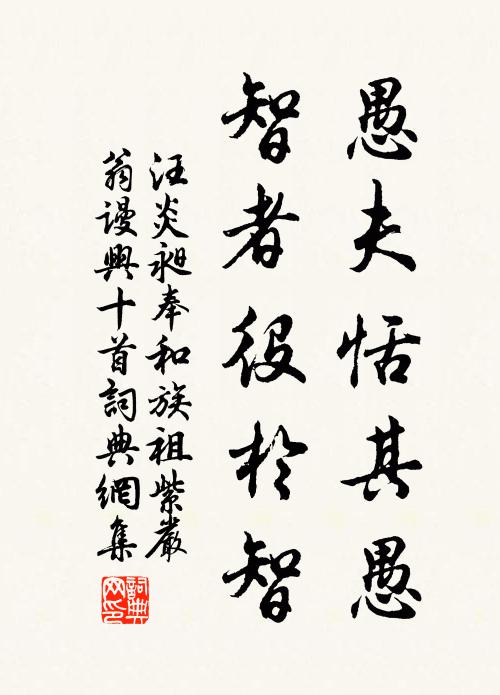 愚夫恬其愚
智者役於智
汪炎昶奉和族祖紫嚴
翁謾興十首詞典網集
詞典网印